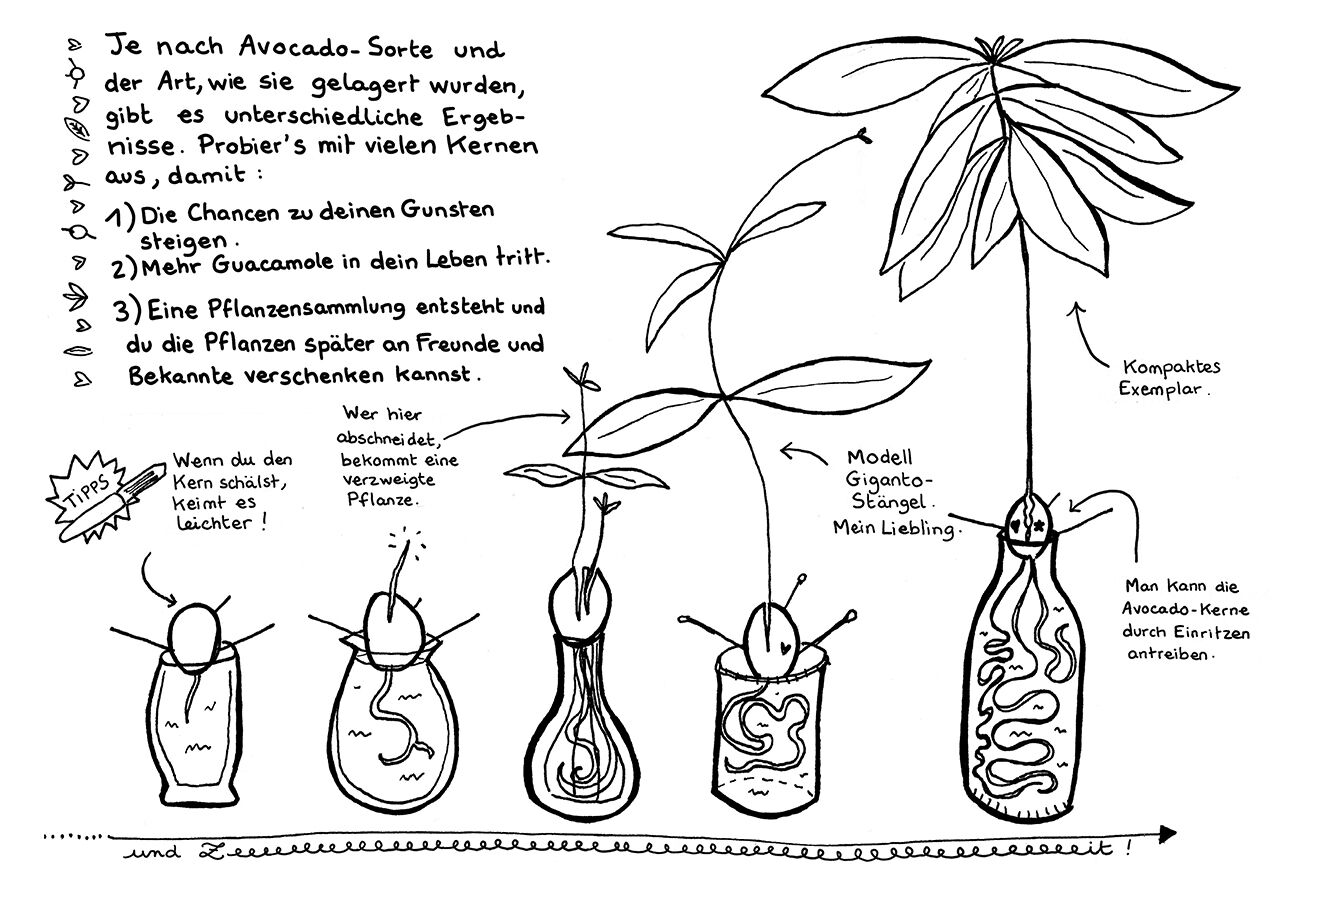 Je nach Avocado-Sorte und
der Art, wie sie gelagert wurden,
gibt es unterschiedliche Ergeb-
nisse. Probier's mit vielen Kernen
aus, damit :
1) Die Chancen zu deinen Gunsten
steigen.
2) Mehr Guacamole in dein Leben tritt.
3) Eine Pflanzensammlung entsteht und
du die Pflanzen später an Freunde und
Bekannte verschenken kannst.
TIPPS
Wenn du den
Kern schälst,
keimt es
leichter !
Wer hier
abschneidet,
bekommt eine
verzweigte
Pflanze.
Modell
Giganto-
Stängel.
Mein Liebling.
Kompaktes
Exemplar.
Man kann die
Avocado-Kerne
durch Einritzen
antreiben.
und Zeeeeeeeeeeeeeeeeeeeeeeeeeeeeeeeeeeeeeeeeeeeeeeeit !